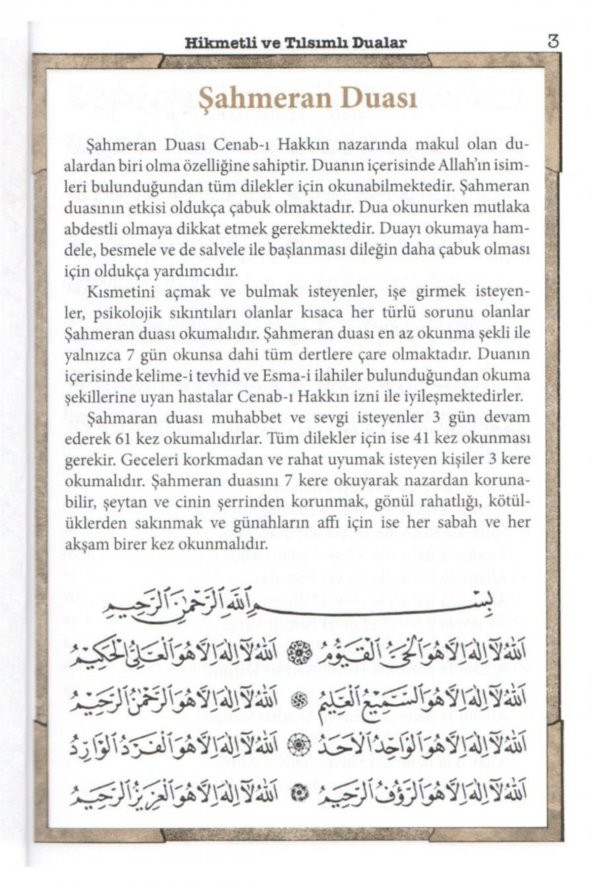 Hikmetli ve Tılsımlı Dualar
3
Şahmeran Duası
Şahmeran Duası Cenab-ı Hakkın nazarında makul olan du-
alardan biri olma özelliğine sahiptir. Duanın içerisinde Allah'ın isim-
leri bulunduğundan tüm dilekler için okunabilmektedir. Şahmeran
duasının etkisi oldukça çabuk olmaktadır. Dua okunurken mutlaka
abdestli olmaya dikkat etmek gerekmektedir. Duayı okumaya ham-
dele, besmele ve de salvele ile başlanması dileğin daha çabuk olması
için oldukça yardımcıdır.
Kısmetini açmak ve bulmak isteyenler, işe girmek isteyen-
ler, psikolojik sıkıntıları olanlar kısaca her türlü sorunu olanlar
Şahmeran duası okumalıdır. Şahmeran duası en az okunma şekli ile
yalnızca 7 gün okunsa dahi tüm dertlere çare olmaktadır. Duanın
içerisinde kelime-i tevhid ve Esma-i ilahiler bulunduğundan okuma
şekillerine uyan hastalar Cenab-ı Hakkın izni ile iyileşmektedirler.
Şahmaran duası muhabbet ve sevgi isteyenler 3 gün devam
ederek 61 kez okumalıdırlar. Tüm dilekler için ise 41 kez okunması
gerekir. Geceleri korkmadan ve rahat uyumak isteyen kişiler 3 kere
okumalıdır. Şahmeran duasını 7 kere okuyarak nazardan koruna-
bilir, şeytan ve cinin şerrinden korunmak, gönül rahatlığı, kötül-
üklerden sakınmak ve günahların affı için ise her sabah ve her
akşam birer kez okunmalıdır.
بِسْمِ اللّٰهِ الرَّحْمٰنِ الرَّحِيمِ
اَللّٰهُ لَا اِلٰهَ اِلَّا هُوَ الْحَيُّ الْقَيُّومُ اَللّٰهُ لَا اِلٰهَ اِلَّا هُوَ الْعَلِيُّ الْحَكِيمُ
اَللّٰهُ لَا اِلٰهَ اِلَّا هُوَ السَّمِيعُ الْعَلِيمُ اَللّٰهُ لَا اِلٰهَ اِلَّا هُوَ الرَّحْمٰنُ الرَّحِيمُ
اَللّٰهُ لَا اِلٰهَ اِلَّا هُوَ الْوَاحِدُ الْاَحَدُ اَللّٰهُ لَا اِلٰهَ اِلَّا هُوَ الْفَرْدُ الْوَارِدُ
اَللّٰهُ لَا اِلٰهَ اِلَّا هُوَ الرَّؤُفُ الرَّحِيمُ اَللّٰهُ لَا اِلٰهَ اِلَّا هُوَ الْعَزِيزُ الرَّحِيمُ